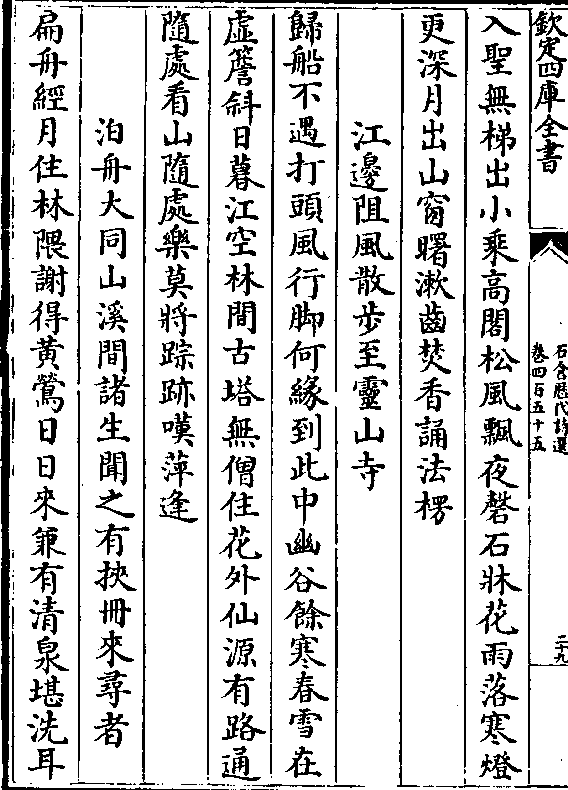 欽定四庫全書
石倉歷代詩選
卷四百五十五
二十九
入聖無梯出小乘高閣松風飄夜磬石牀花雨落寒燈
更深月出山窗曙漱齒焚香誦法楞
江邊阻風散步至靈山寺
歸船不遇打頭風行脚何緣到此中幽谷餘寒春雪在
虛簷斜日暮江空林間古塔無僧住花外仙源有路通
隨處看山隨處樂莫將踪跡嘆萍逢
泊舟大同山溪間諸生聞之有挾冊來尋者
扁舟經月住林隈謝得黃鶯日日來兼有清泉堪洗耳